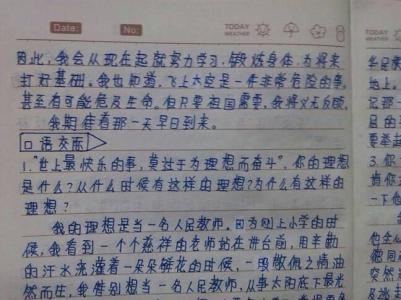 Date:
No:
TODAY
WEATHER
TODAY
WEATHER
因此,我会从现在起就努力学习,锻炼身体,为将来
打好基础。我也知道,飞上太空是一件非常危险的事,
甚至有可能危及生命。但只要祖国需要,我将义无反顾。
我期待着那一天早日到来。
口语交际
1."世上最快乐的事,莫过于为理想而奋斗"。你的理想
是什么?从什么时候有这样的理想?为什么有这样的
理想?
我的理想是当一名人民教师。因为刚上小学的时
候,我看到一个个慈祥的老师站在讲台前,用辛勤
的汗水浇灌着一朵朵鲜花的时候,一股敬佩之情油
然而生,我特别想当一名人民教师,从事太阳底下最光
地上。
记那一
3.你